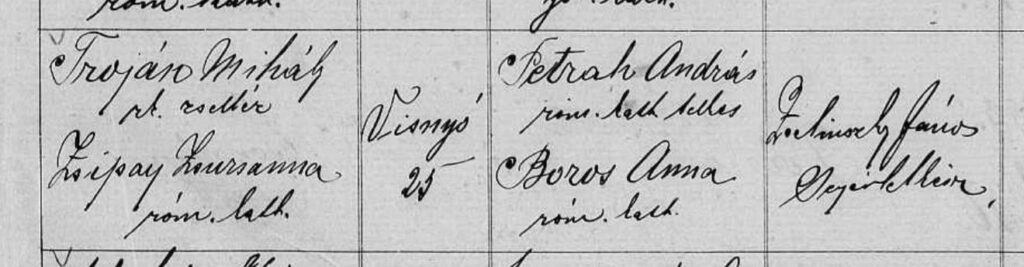 róm. kath.
Troján Mihály
rk. zsellér
Zsipay Zsuzsanna
róm. kath.
Visnyó
25
Petrah András
róm. kath. telkes
Boros Anna
róm. kath.
János